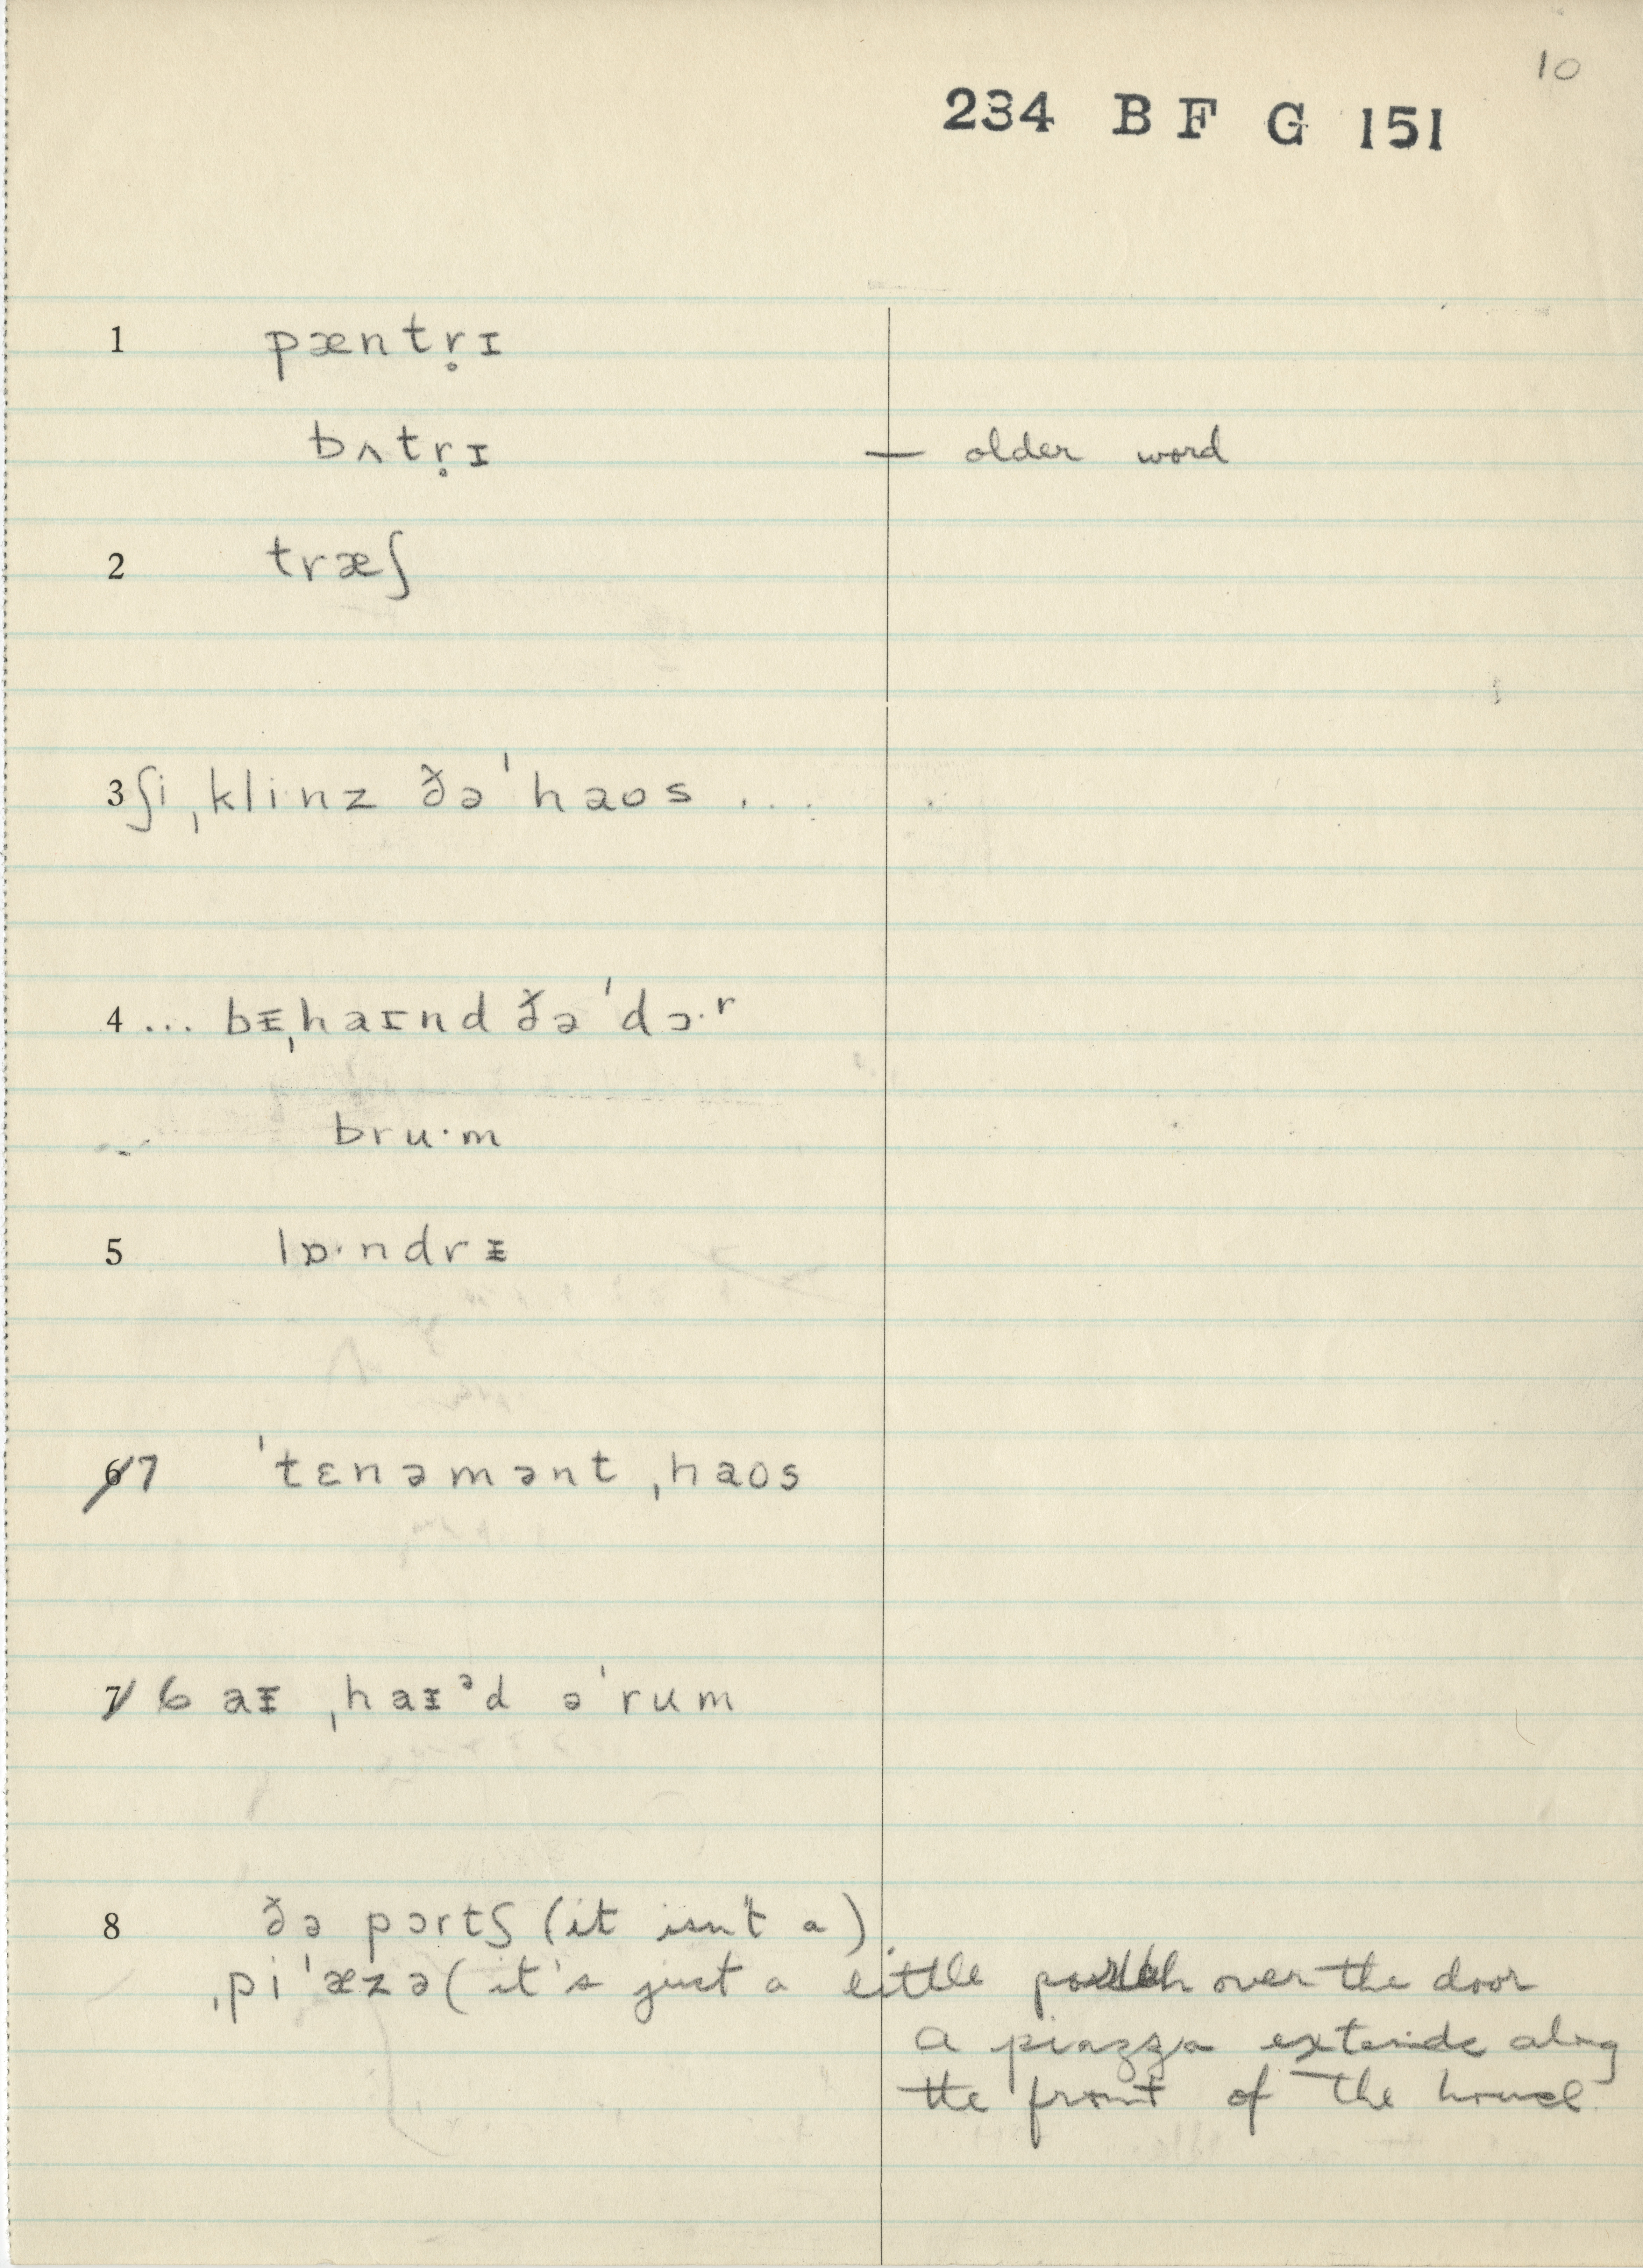 10
234 B F G 151
1 pæntr̥̣ɪ
bʌtr̥̣ɪ — older word
2 træʃ
3 ʃi ˌklinz ðə ˈhaos ...
4 ... bᵻˌhaɪnd ðə ˈdɔ·ʳ
bru·m
5 lɒ·ndrᵻ
6 7 ˈtɛnəmənt ˌhaos
7 6 aᵻ ˌhaᵻᵊd ə ˈrum
8 ðə pɔrtʃ (it isn't a)
ˌpiˈæzə (it's just a little porch over the door
a piazza extends along
the front of the house)